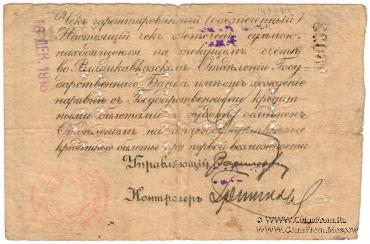 Чекъ гарантированный (обезпеченный)
Настоящій чекъ обезпеченъ суммою,
находящеюся на текущемъ счету
во Владикавказскомъ Отдѣленіи Госу-
дарственнаго Банка, имѣетъ хожденіе
наравнѣ съ Государственными кредит-
ными билетами и будетъ
Отдѣленіемъ на
кредитные билеты при первой возможности
Управляющій
Контролеръ
© www.CoinsFrom.Ru
CoinsFromMoscow